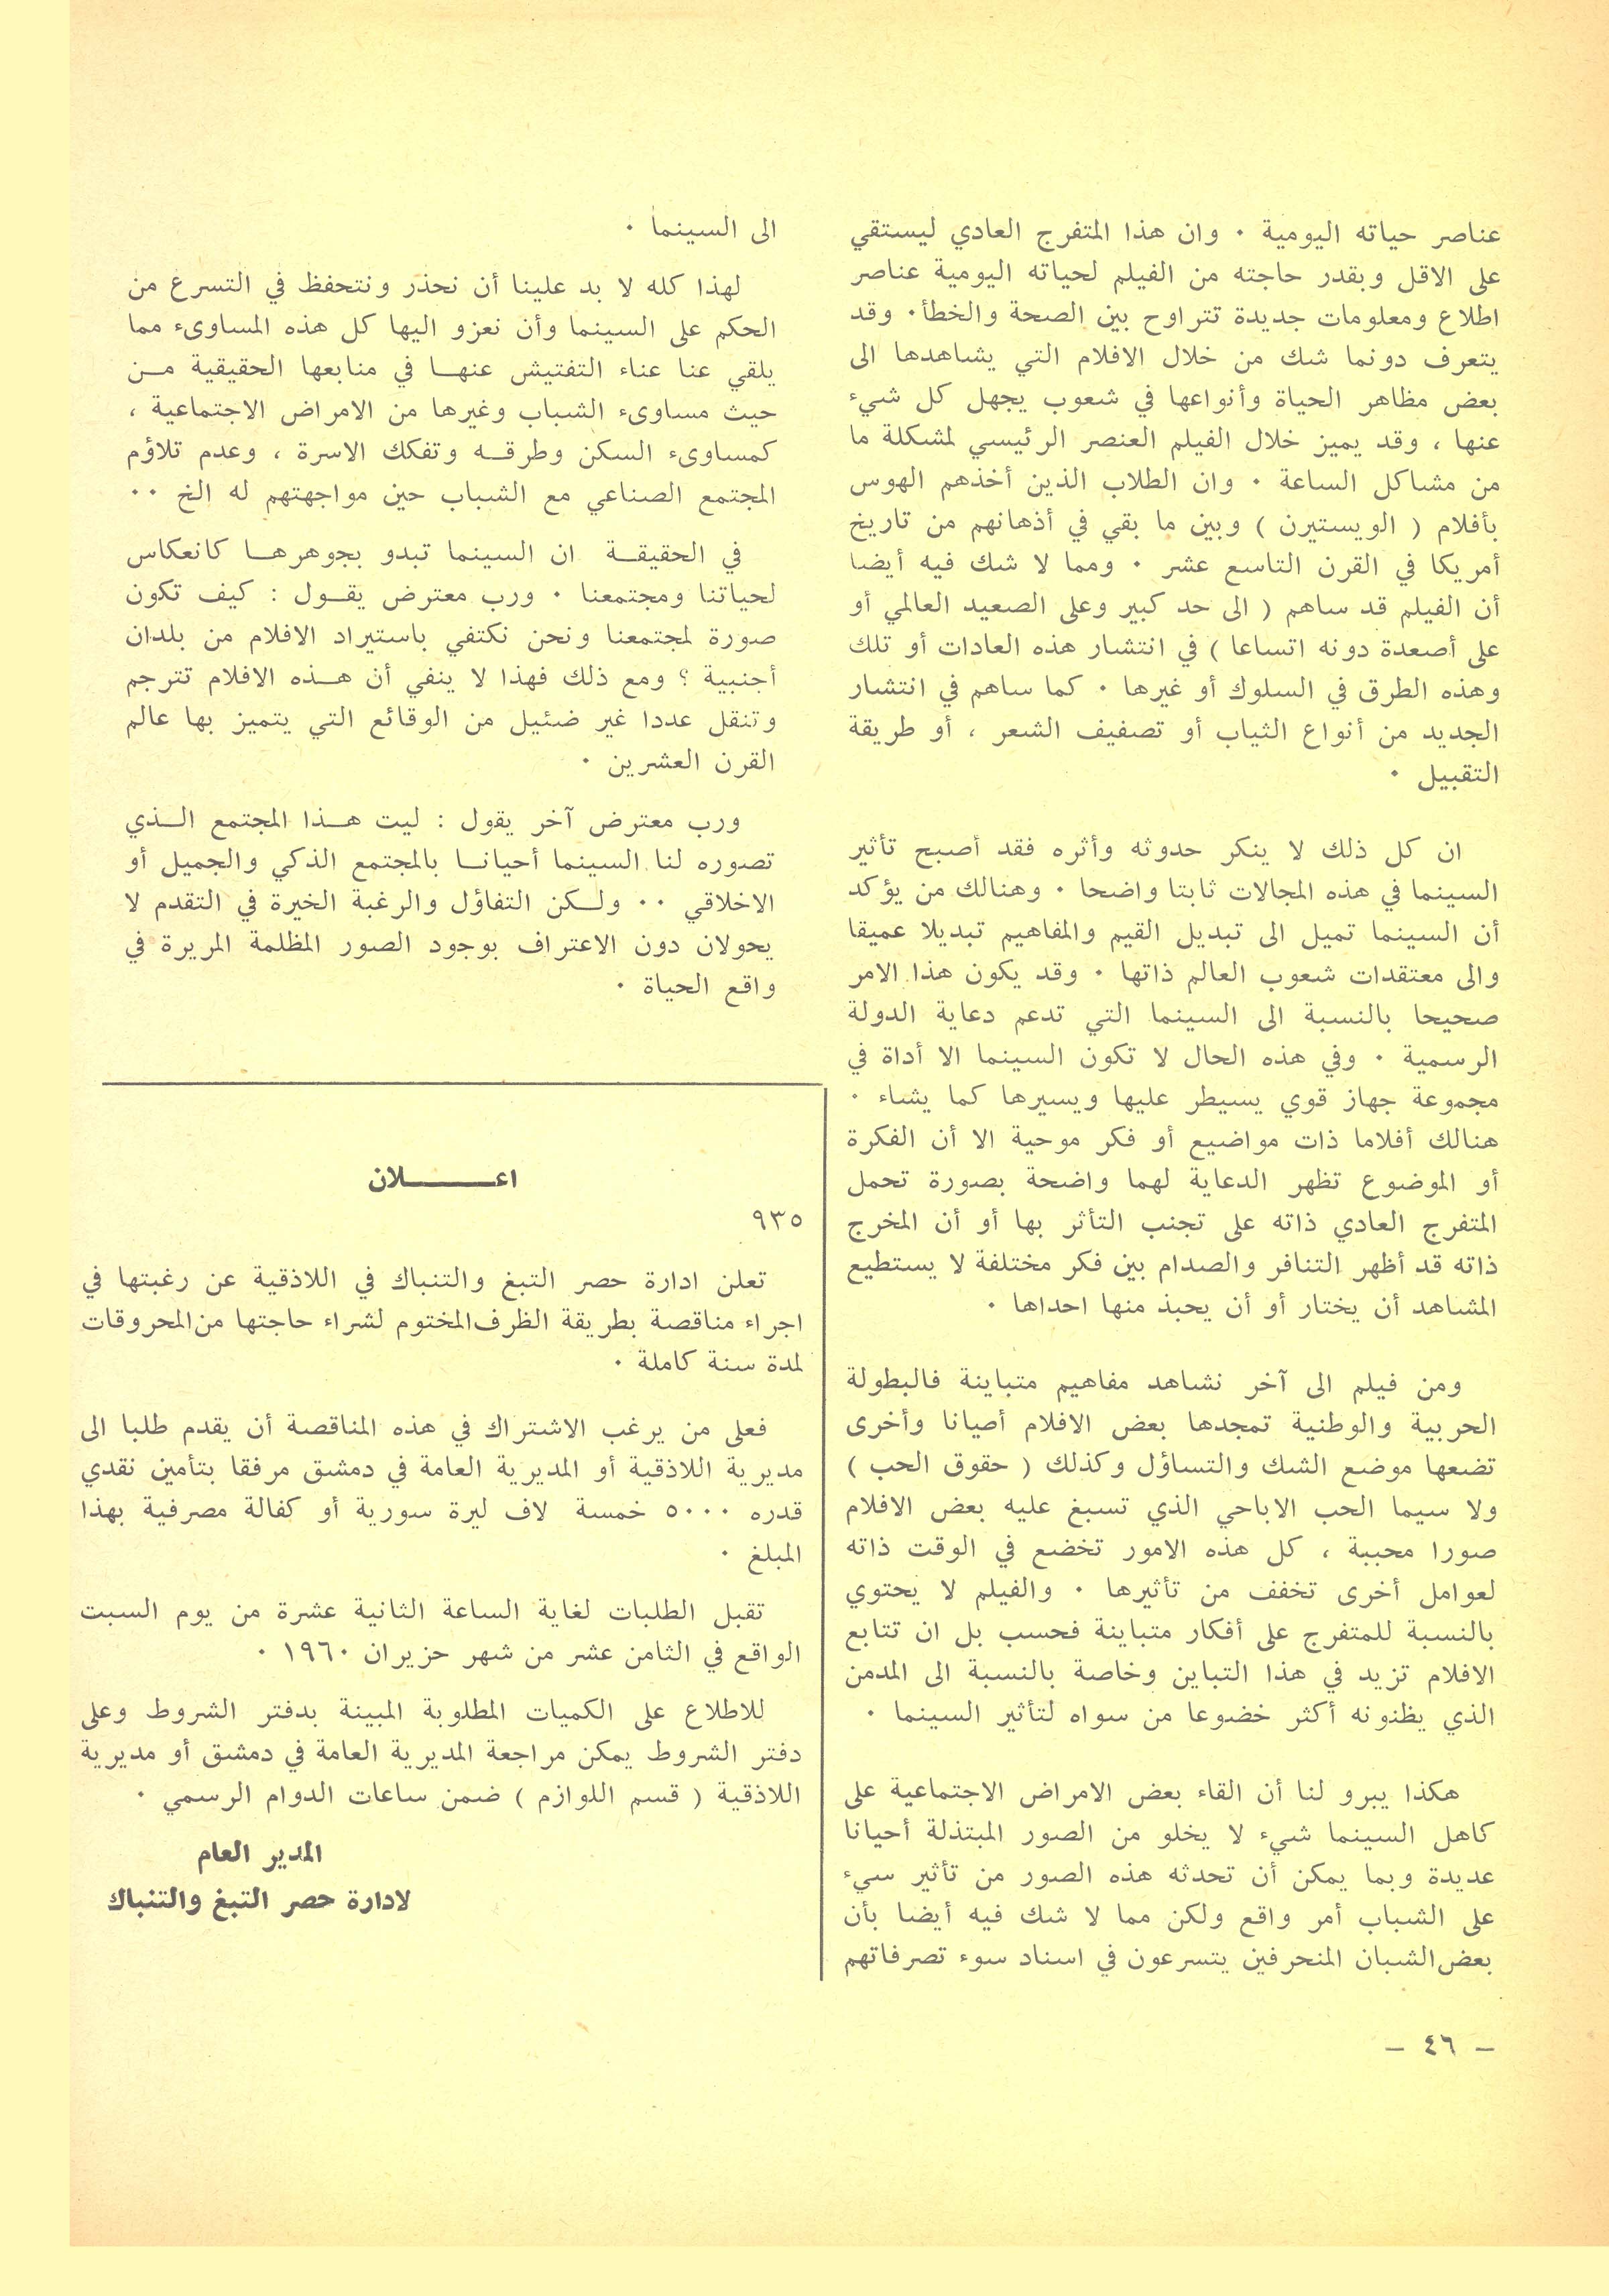 عناصر حياته اليومية ٠ وان هذا المتفرج العادي ليستقي
على الاقل وبقدر حاجته من الفيلم لحياته اليومية عناصر
اطلاع ومعلومات جديدة تتراوح بين الصحة والخطأ٠ وقد
يتعرف دونما شك من خلال الافلام التي يشاهدها الى
بعض مظاهر الحياة وأنواعها في شعوب يجهل كل شيء
عنها ، وقد يميز خلال الفيلم العنصر الرئيسي لمشكلة ما
من مشاكل الساعة ٠ وان الطلاب الذين أخذهم الهوس
بأفلام ( الويستيرن ) وبين ما بقي في أذهانهم من تاريخ
أمريكا في القرن التاسع عشر ٠ ومما لا شك فيه أيضا
أن الفيلم قد ساهم ( الى حد كبير وعلى الصعيد العالمي أو
على أصعدة دونه اتساعا ) في انتشار هذه العادات أو تلك
وهذه الطرق في السلوك أو غيرها ٠ كما ساهم في انتشار
الجديد من أنواع الثياب أو تصفيف الشعر ، أو طريقة
التقبيل ٠
ان كل ذلك لا ينكر حدوثه وأثره فقد أصبح تأثير
السينما في هذه المجالات ثابتا واضحا ٠ وهنالك من يؤكد
أن السينما تميل الى تبديل القيم والمفاهيم تبديلا عميقا
والى معتقدات شعوب العالم ذاتها ٠ وقد يكون هذا الامر
صحيحا بالنسبة الى السينما التي تدعم دعاية الدولة
الرسمية ٠ وفي هذه الحال لا تكون السينما الا أداة في
مجموعة جهاز قوي يسيطر عليها ويسيرها كما يشاء ٠
هنالك أفلاما ذات مواضيع أو فكر موحية الا أن الفكرة
أو الموضوع تظهر الدعاية لهما واضحة بصورة تحمل
المتفرج العادي ذاته على تجنب التأثر بها أو أن المخرج
ذاته قد أظهر التنافر والصدام بين فكر مختلفة لا يستطيع
المشاهد أن يختار أو أن يحبذ منها احداها ٠
ومن فيلم الى آخر نشاهد مفاهيم متباينة فالبطولة
الحربية والوطنية تمجدها بعض الافلام أصيانا وأخرى
تضعها موضع الشك والتساؤل وكذلك ( حقوق الحب )
ولا سيما الحب الاباحي الذي تسبغ عليه بعض الافلام
صورا محببة ، كل هذه الامور تخضع في الوقت ذاته
لعوامل أخرى تخفف من تأثيرها ٠ والفيلم لا يحتوي
بالنسبة للمتفرج على أفكار متباينة فحسب بل ان تتابع
الافلام تزيد في هذا التباين وخاصة بالنسبة الى المدمن
الذي يظنونه أكثر خضوعا من سواه لتأثير السينما ٠
هكذا يبرو لنا أن القاء بعض الامراض الاجتماعية على
كاهل السينما شيء لا يخلو من الصور المبتذلة أحيانا
عديدة وبما يمكن أن تحدثه هذه الصور من تأثير سيء
على الشباب أمر واقع ولكن مما لا شك فيه أيضا بأن
بعض الشبان المنحرفين يتسرعون في اسناد سوء تصرفاتهم
الى السينما ٠
لهذا كله لا بد علينا أن نحذر ونتحفظ في التسرع من
الحكم على السينما وأن نعزو اليها كل هذه المساوىء مما
يلقي عنا عناء التفتيش عنهـا في منابعها الحقيقية مـن
حيث مساوىء الشباب وغيرها من الامراض الاجتماعية ،
كمساوىء السكن وطرقـه وتفكك الاسرة ، وعدم تلاؤم
المجتمع الصناعي مع الشباب حين مواجهتهم له الخ ٠٠
في الحقيقـة ان السينما تبدو بجوهرهـا كانعكاس
لحياتنا ومجتمعنا ٠ ورب معترض يقـول : كيف تكون
صورة لمجتمعنا ونحن نكتفي باستيراد الافلام من بلدان
أجنبية ؟ ومع ذلك فهذا لا ينفي أن هـذه الافلام تترجم
وتنقل عددا غير ضئيل من الوقائع التي يتميز بها عالم
القرن العشرين ٠
ورب معترض آخر يقول : ليت هـذا المجتمع الـذي
تصوره لنا السينما أحيانـا بالمجتمع الذكي والجميل أو
الاخلاقي ٠٠ ولـكن التفاؤل والرغبة الخيرة في التقدم لا
يحولان دون الاعتراف بوجود الصور المظلمة المريرة في
واقع الحياة ٠
اعــــــلان
٩٣٥
تعلن ادارة حصر التبغ والتنباك في اللاذقية عن رغبتها في
اجراء مناقصة بطريقة الظرف المختوم لشراء حاجتها من المحروقات
لمدة سنة كاملة ٠
فعلى من يرغب الاشتراك في هذه المناقصة أن يقدم طلبا الى
مديرية اللاذقية أو المديرية العامة في دمشق مرفقا بتأمين نقدي
قدره ٥٠٠٠ خمسة لاف ليرة سورية أو كفالة مصرفية بهذا
المبلغ ٠
تقبل الطلبات لغاية الساعة الثانية عشرة من يوم السبت
الواقع في الثامن عشر من شهر حزيران ١٩٦٠ ٠
للاطلاع على الكميات المطلوبة المبينة بدفتر الشروط وعلى
دفتر الشروط يمكن مراجعة المديرية العامة في دمشق أو مديرية
اللاذقية ( قسم اللوازم ) ضمن ساعات الدوام الرسمي ٠
المدير العام
لادارة حصر التبغ والتنباك
– ٤٦ –